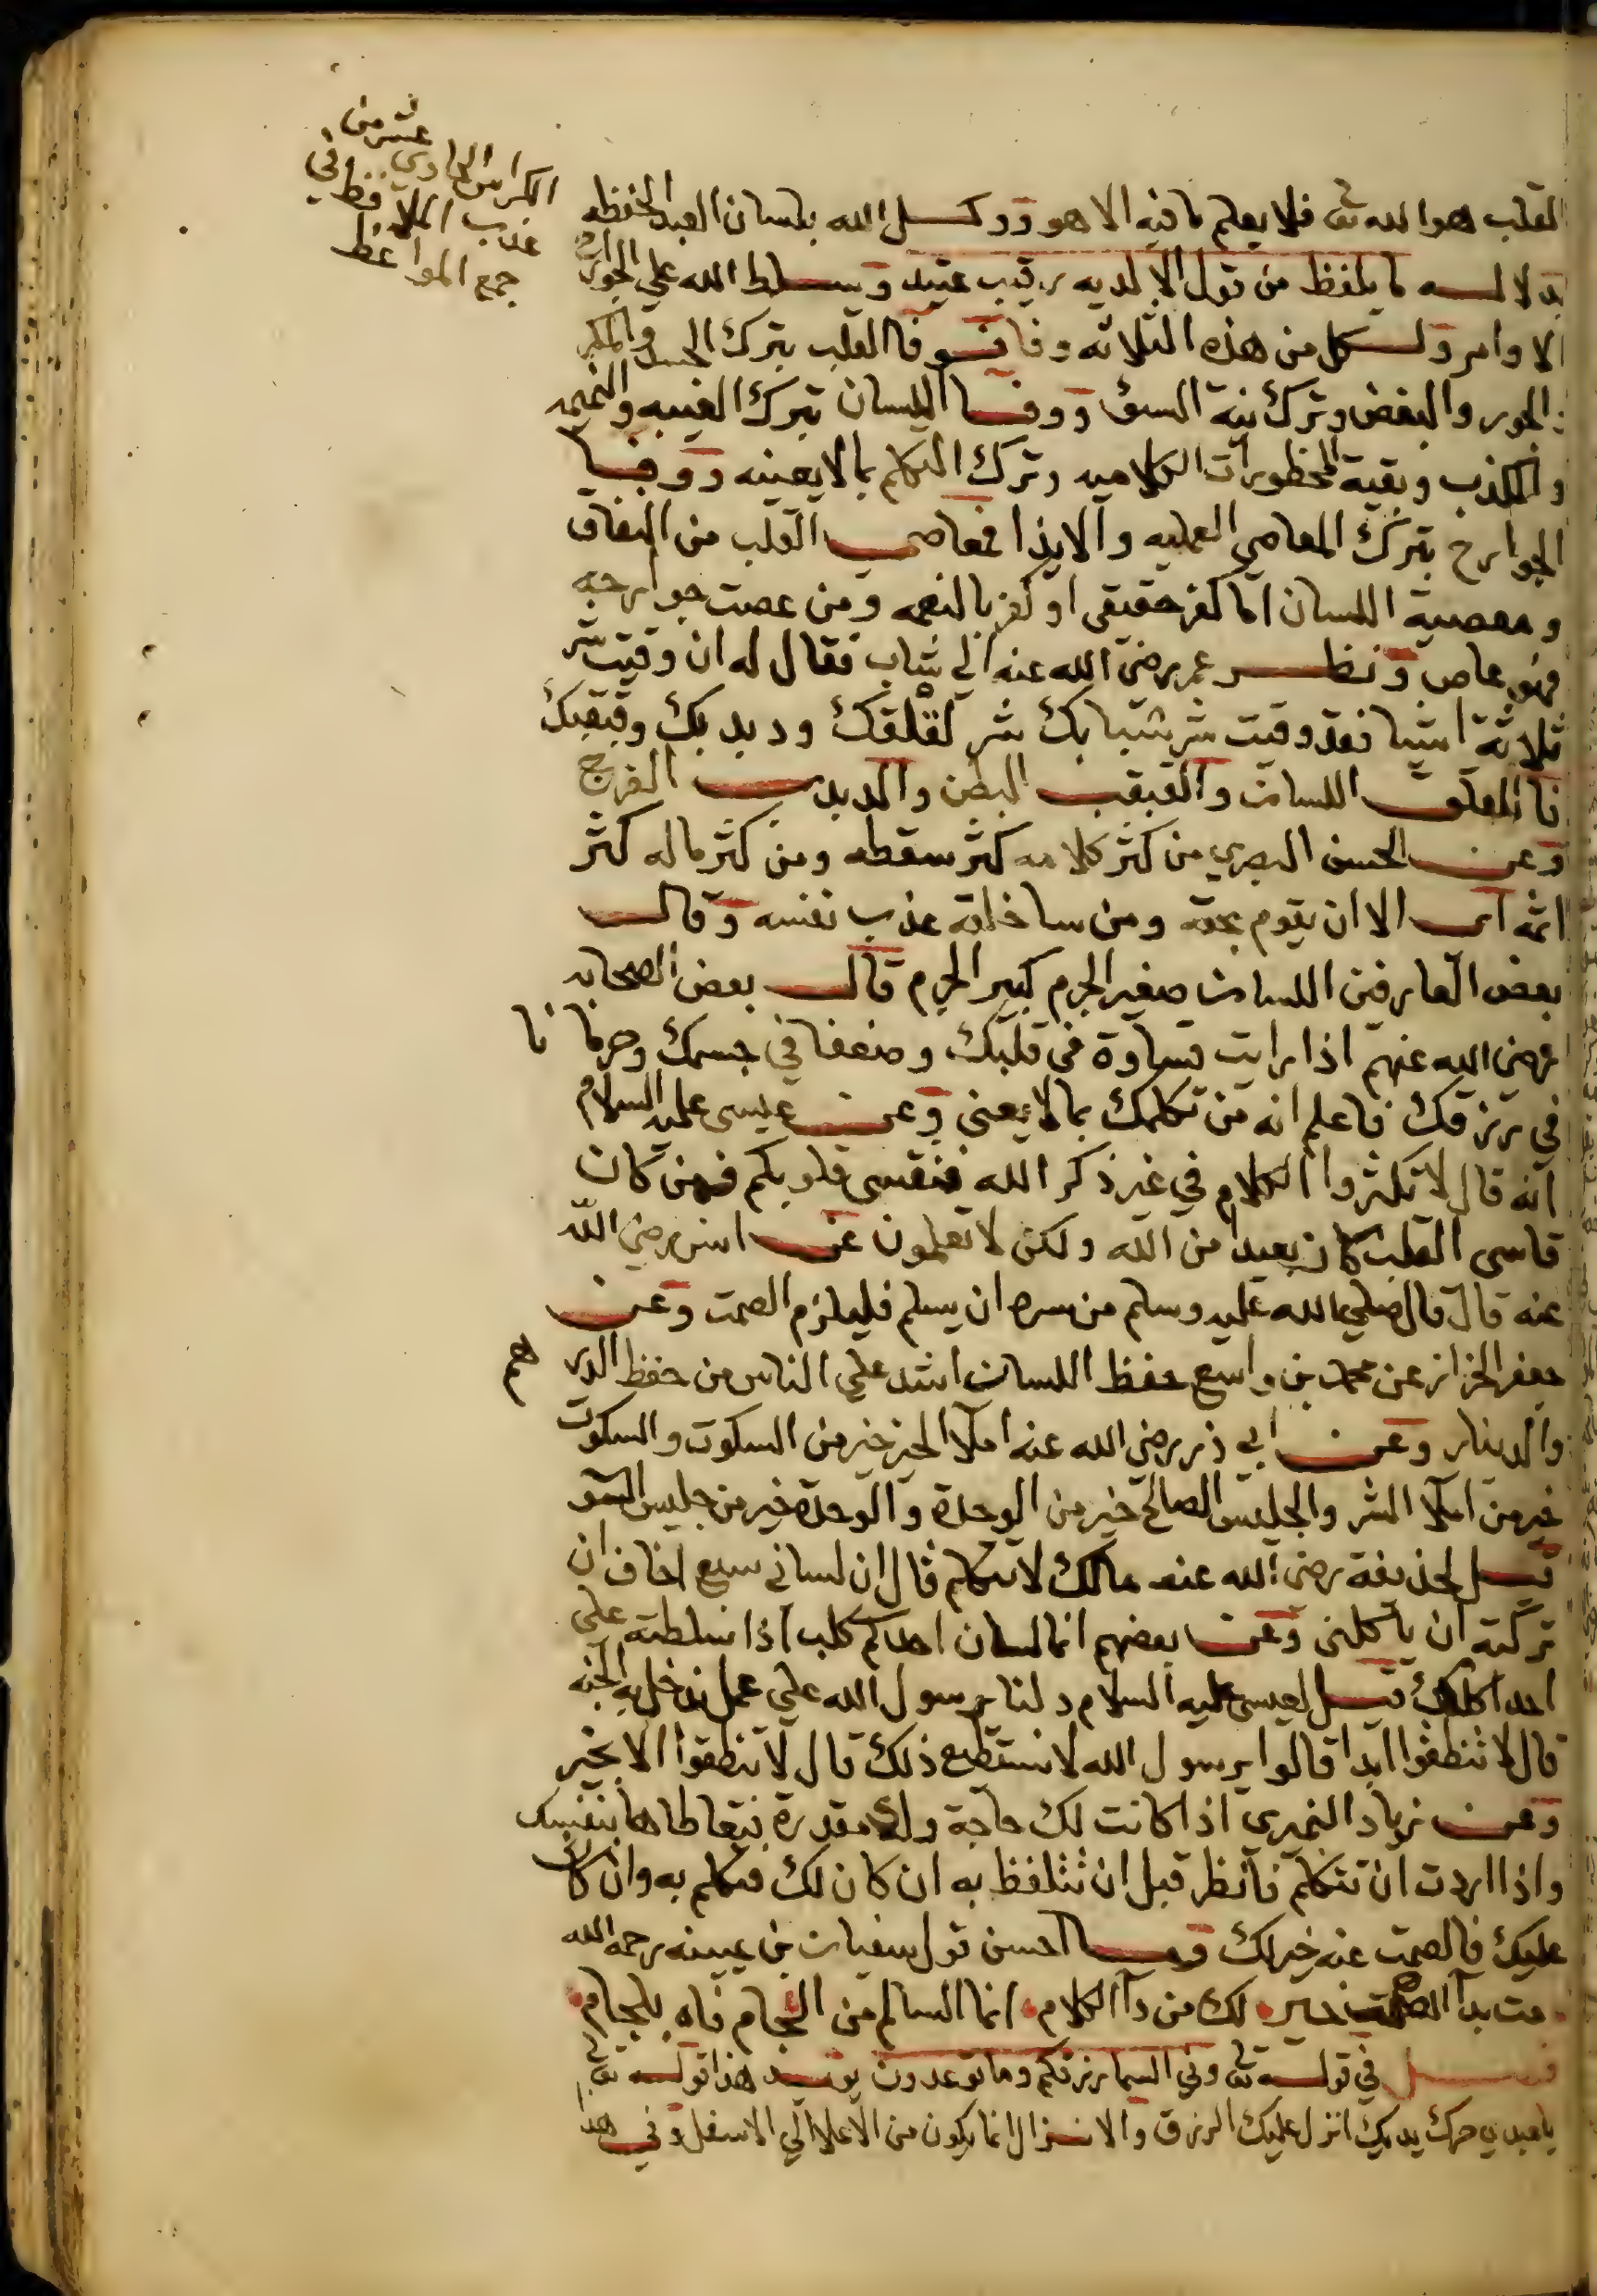 عشر من
الكراس الحادي
عذب الملافظ في
جمع المواعظ
القلب هو الله تعالى فلا يعلم ما فيه الا هو ووكل الله بلسان العبد الحفظه
بدلالة ما يلفظ من قول الا لديه رقيب عتيد وسلط الله على الجوارح
الاوامر ولكل من هذه الثلاثه وفا فوفا القلب بترك الحسد والمكر
والبغض وترك نية السؤ ووفا اللسان بترك الغيبه والنميمه
والكذب وبقية المحظورات الكلاميه وترك التكلم بما لا يعينه ووفا
الجوارح بترك المعاصي العمليه والايذا فمعاصي القلب من النفاق
ومعصية اللسان اما كفر حقيقي او كفر بالنعمه ومن عصت جوارحه
فهو عاص ونظر عمر رضي الله عنه الي شاب فقال له ان وقيت شر
ثلاثة اشيا فقد وقيت شر شبابك شر لقلقك ودبدبك وقبقبك
فاللقلق اللسان والقبقب البطن والدبدب الفرج
وعن الحسن البصري من كثر كلامه كثر سقطه ومن كثر ماله كثر
اثمه اي الا ان يقوم بحقه ومن سا خلقه عذب نفسه وقال
بعض العارفين اللسان صغير الجرم كبير الجرم قال بعض الصحابه
رضي الله عنهم اذا رايت قساوة في قلبك وضعفا في جسمك وحرمانا
في رزقك فاعلم انه من تكلمك بما لا يعني وعن عيسى عليه السلام
انه قال لا تكثروا الكلام في غير ذكر الله فتقسى قلوبكم فمن كان
قاسى القلب كان بعيدا من الله ولكن لا تعلمون عن انس رضي الله
عنه قال قال صلي الله عليه وسلم من سره ان يسلم فليلزم الصمت وعن
جعفر الخزاز عن محمد بن واسع حفظ اللسان اشد علي الناس من حفظ الدرهم
والدينار وعن ابي ذر رضي الله عنه املا الخير خير من السكوت والسكوت
خير من املا الشر والجليس الصالح خير من الوحدة والوحدة خير من جليس السو
قيل لحذيفة رضي الله عنه مالك لا تتكلم قال ان لساني سبع اخاف ان
تركته ان ياكلني وعن بعضهم انما لسان احدكم كلب اذا سلطته على
احد اكلك قيل لعيسى عليه السلام دلنا يرسول الله علي عمل ندخل به الجنه
قال لا تنطقوا ابدا قالوا يرسول الله لا نستطع ذلك قال لا تنطقوا الا بخير
وعن زياد النميري اذا كانت لك حاجة ولك مقدرة فتعاطاها بنفسك
واذا اردت ان تتكلم فانظر قبل ان تتلفظ به ان كان لك فتكلم به وان كان
عليك فالصمت عنه خير لك وما احسن قول سفيان بن عيينه رحمه الله
مت بدا الصمت خير لك من دا الكلام انما السالم من الجم فاه بلجام
فصل في قوله تعالى وفي السما رزقكم وما توعدون يويد هذا قوله تعالى
يا عبدي حرك يديك انزل عليك الرزق والانزال انما يكون من الاعلا الي الاسفل وفي هذا